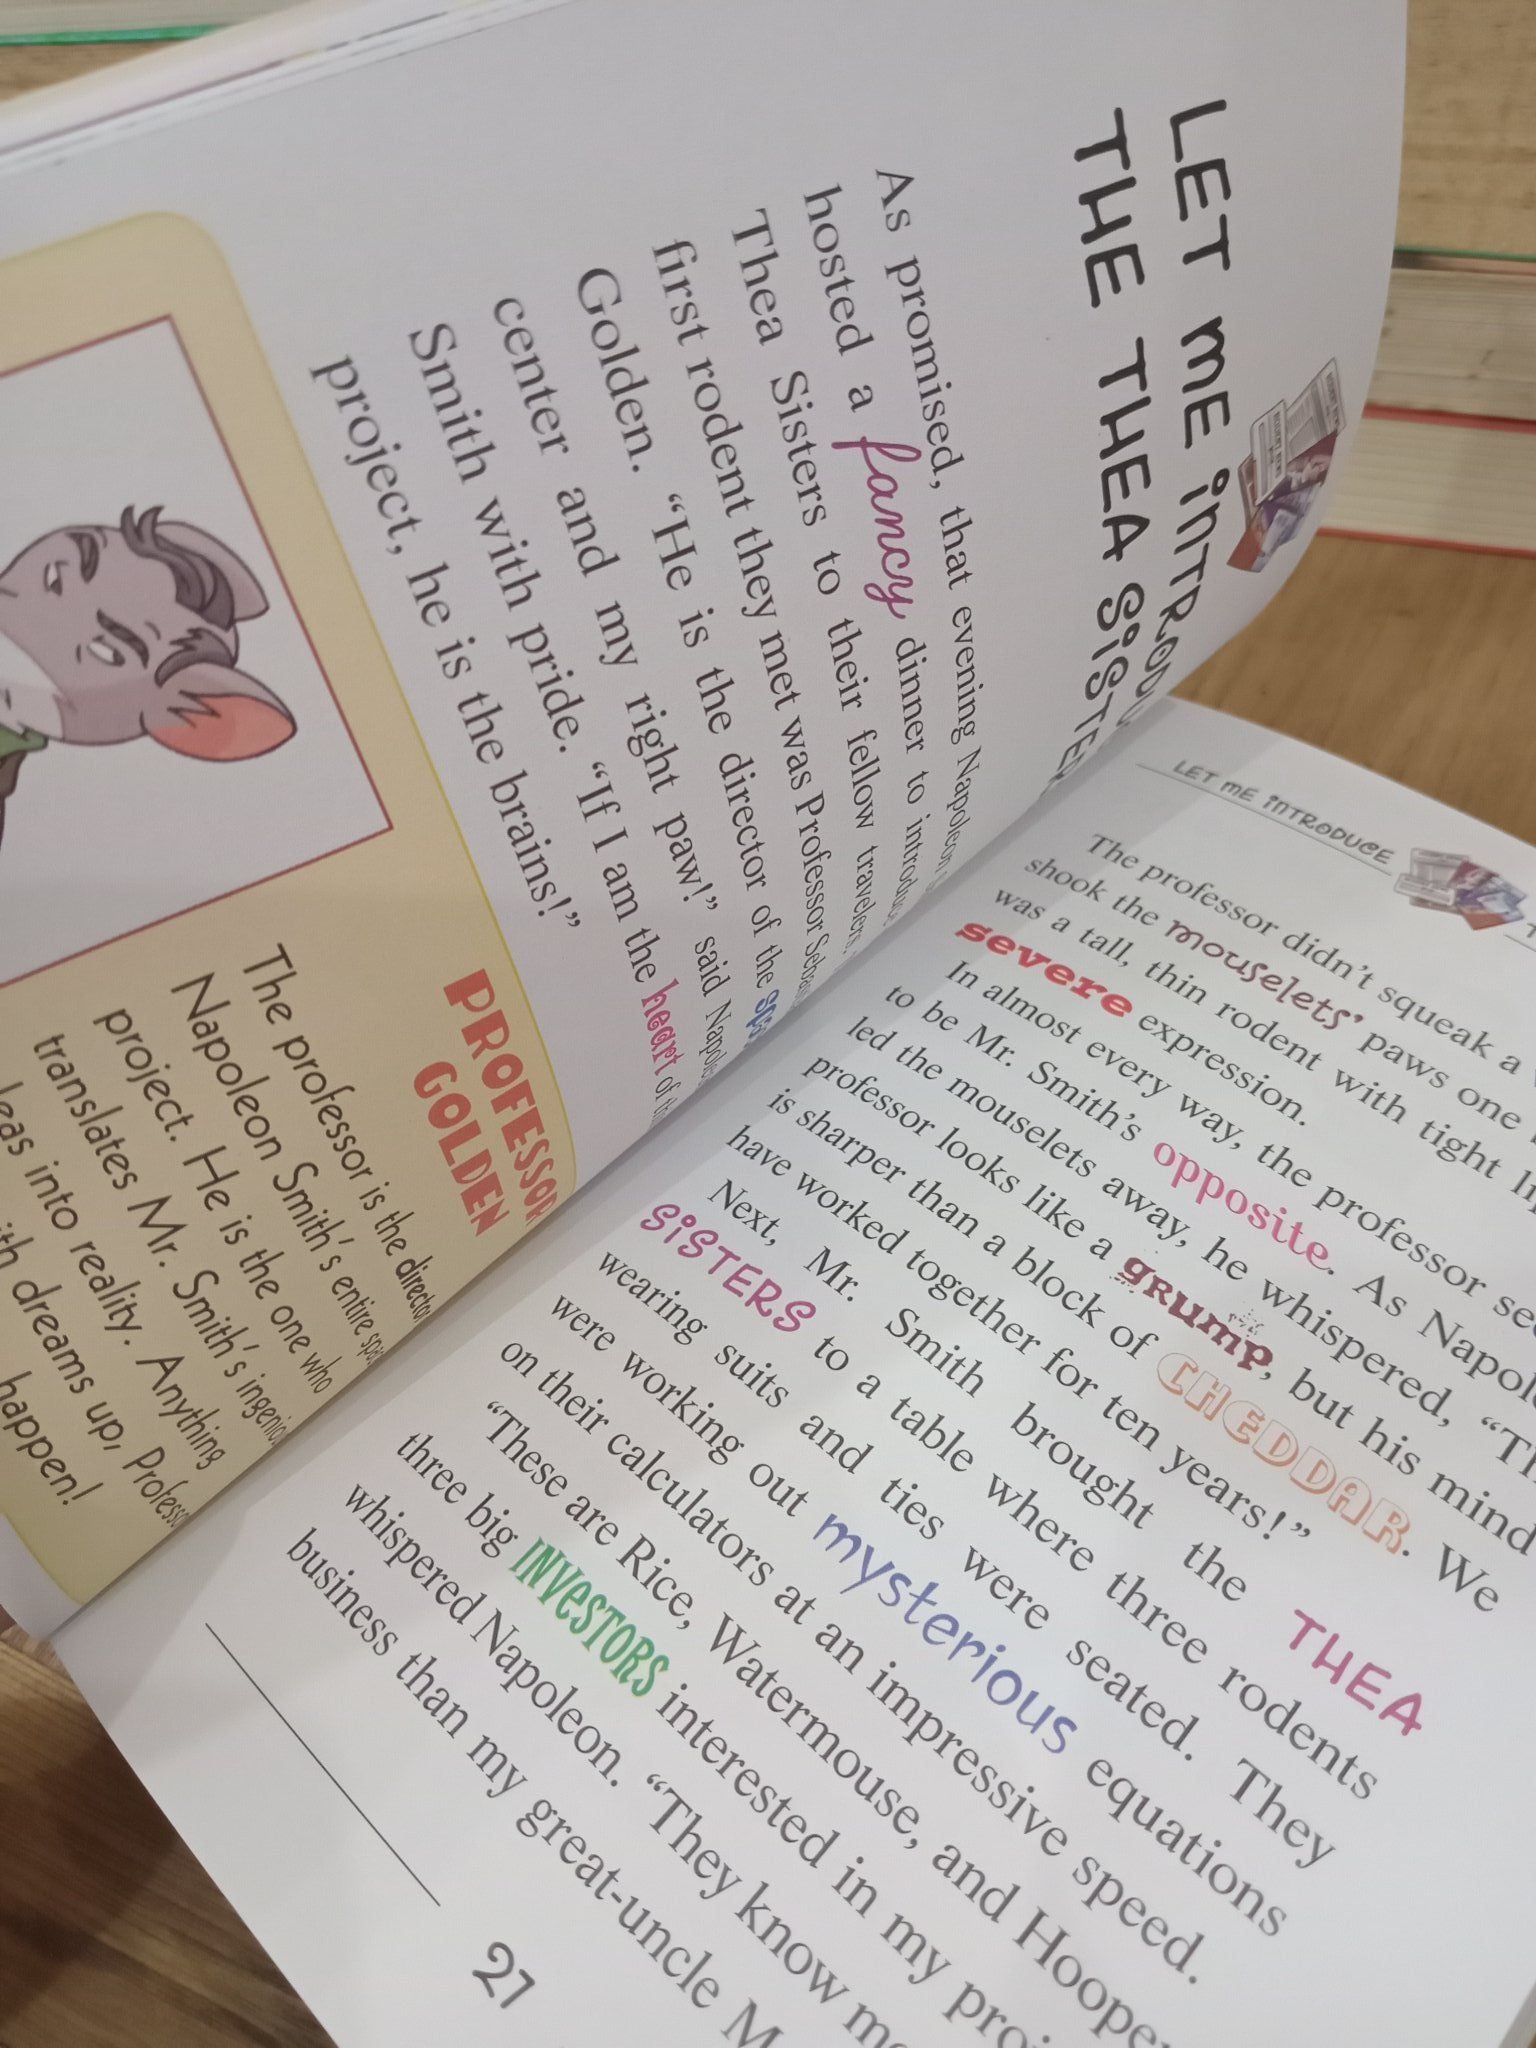 LET ME INTRODU
THE THEA SISTER
As promised, that evening Napoleon
hosted a fancy dinner to introduce
Thea Sisters to their fellow travelers.
first rodent they met was Professor
Golden. "He is the director of the
center and my right paw!" said
Smith with pride. "If I am the heart of
project, he is the brains!"
PROFESSOR
GOLDEN
The professor is the director
Napoleon Smith's entire
project. He is the one who
translates Mr. Smith's
into reality. Anything
dreams up,
happen!
LET ME INTRODUCE
The professor didn't squeak a
shook the mouselets' paws one
was a tall, thin rodent with tight
severe expression.
In almost every way, the professor
to be Mr. Smith's opposite. As
led the mouselets away, he whispered,
professor looks like a grump, but his mind
is sharper than a block of CHEDDAR. We
have worked together for ten years!"
Next, Mr. Smith brought the THEA
SISTERS to a table where three rodents
wearing suits and ties were seated. They
were working out mysterious equations
on their calculators at an impressive speed.
"These are Rice, Watermouse, and
three big INVESTORS interested in my
whispered Napoleon. "They know
business than my great-uncle
27